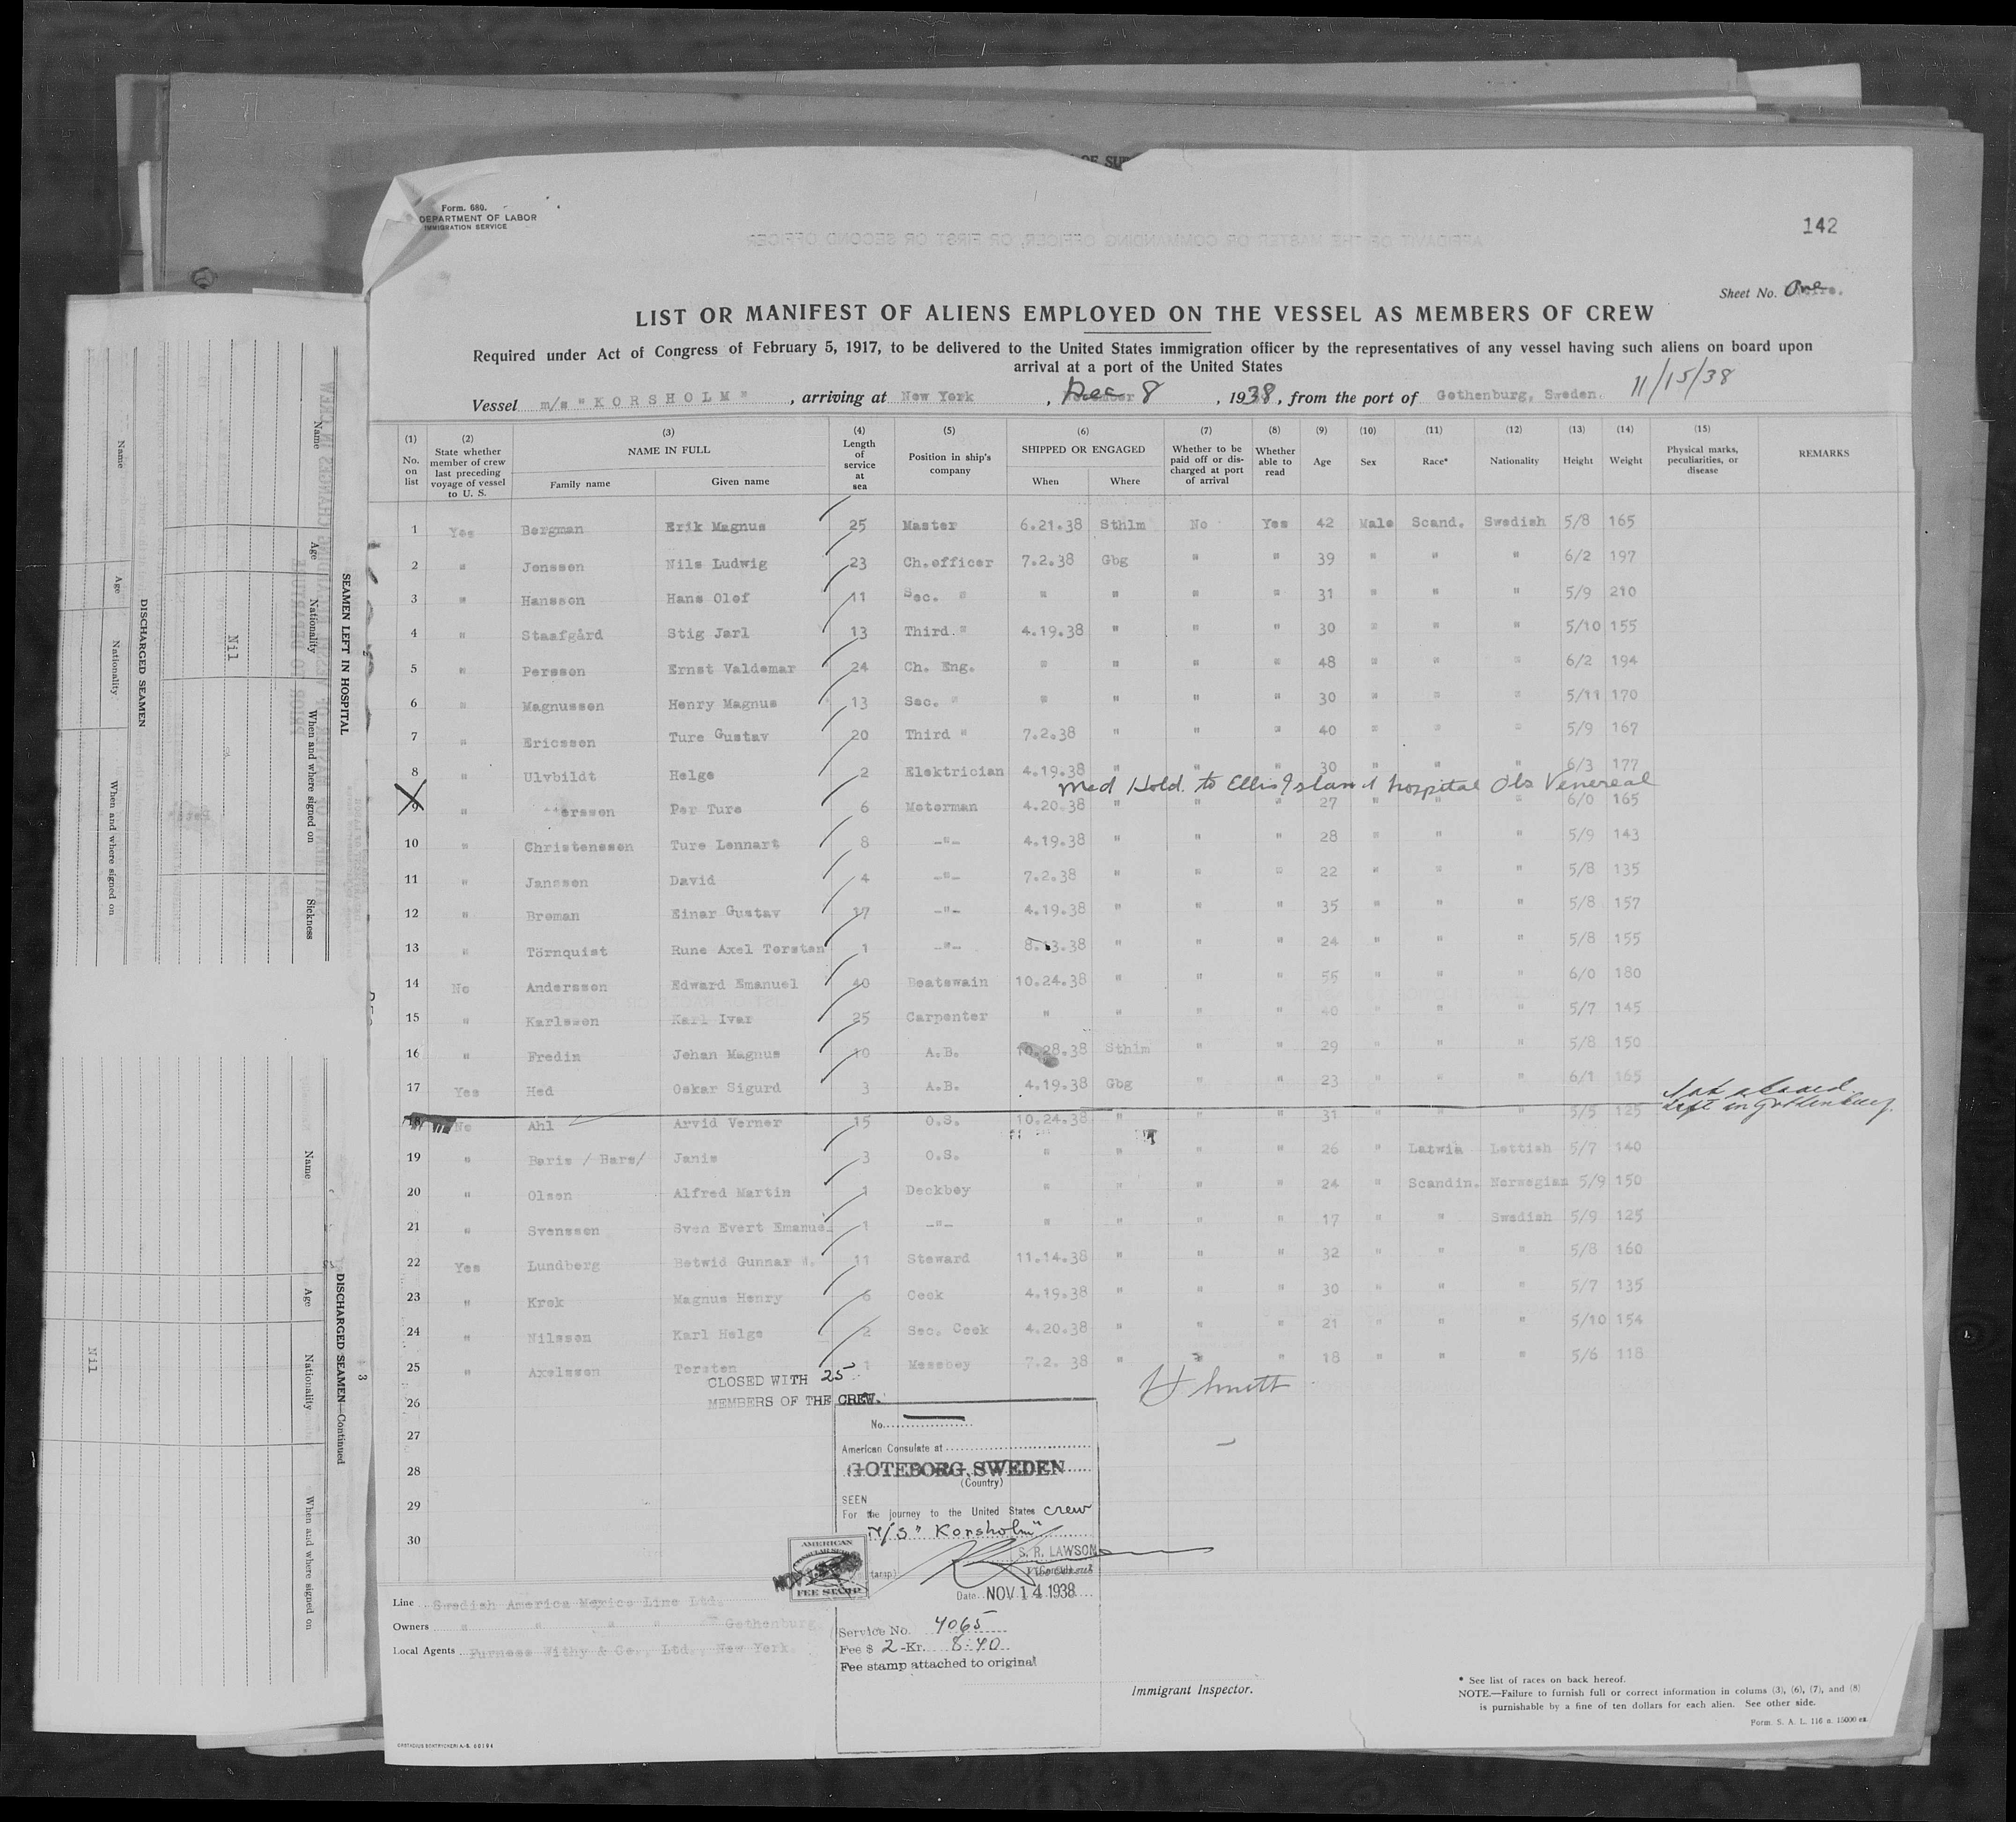 OF SUP
Form. 680.
DEPARTMENT OF LABOR
IMMIGRATION SERVICE
142
AFFIDAVIT OF THE MASTER OR COMMANDING OFFICER, OR FIRST OR SECOND OFFICER
Sheet No. One
LIST OR MANIFEST OF ALIENS EMPLOYED ON THE VESSEL AS MEMBERS OF CREW
Required under Act of Congress of February 5, 1917, to be delivered to the United States immigration officer by the representatives of any vessel having such aliens on board upon
arrival at a port of the United States
11/15/38
Vessel m/s "KORSHOLM", arriving at New York, Dec 8, 1938, from the port of Gothenburg, Sweden.
(1) No. on list (2) State whether member of crew last preceding voyage of vessel to U. S. (3) NAME IN FULL Family name Given name (4) Length of service at sea (5) Position in ship's company (6) SHIPPED OR ENGAGED When Where (7) Whether to be paid off or discharged at port of arrival (8) Whether able to read (9) Age (10) Sex (11) Race* (12) Nationality (13) Height (14) Weight (15) Physical marks, peculiarities, or disease REMARKS
1 Yes Bergman Erik Magnus 25 Master 6.21.38 Sthlm No Yes 42 Male Scand. Swedish 5/8 165
2 " Jonsson Nils Ludwig 23 Ch.officer 7.2.38 Gbg " " 39 " " " 6/2 197
3 " Hansson Hans Olof 11 Sec. " " " " " 31 " " " 5/9 210
4 " Staafgård Stig Jarl 13 Third " 4.19.38 " " " 30 " " " 5/10 155
5 " Persson Ernst Valdemar 24 Ch. Eng. " " " " 48 " " " 6/2 194
6 " Magnusson Henry Magnus 13 Sec. " " " " " 30 " " " 5/11 170
7 " Ericsson Ture Gustav 20 Third " 7.2.38 " " " 40 " " " 5/9 167
8 " Ulvbildt Helge 2 Elektrician 4.19.38 " " " 30 " " " 6/3 177
Med Hold. to Ellis Island hospital Obs Venereal
9 " ersson Per Ture 6 Motorman 4.20.38 " " " 27 " " " 6/0 165
10 " Christensson Ture Lennart 8 -"- 4.19.38 " " " 28 " " " 5/9 143
11 " Jansson David 4 -"- 7.2.38 " " " 22 " " " 5/8 135
12 " Broman Einar Gustav 17 -"- 4.19.38 " " " 35 " " " 5/8 157
13 " Törnquist Rune Axel Torsten 1 -"- 8.13.38 " " " 24 " " " 5/8 155
14 No Andersson Edward Emanuel 40 Boatswain 10.24.38 " " " 55 " " " 6/0 180
15 " Karlsson Karl Ivar 25 Carpenter " " " " 40 " " " 5/7 145
16 " Fredin Johan Magnus 10 A.B. 10.28.38 Sthlm " " 29 " " " 5/8 150
17 Yes Hed Oskar Sigurd 3 A.B. 4.19.38 Gbg " " 23 " " " 6/1 165
Not aboard.
Left in Gothenburg.
18 No Ahl Arvid Verner 15 O.S. 10.24.38 " " " 31 " " " 5/5 125
19 " Baris / Bars/ Janis 3 O.S. " " " " 26 " Latwia Lettish 5/7 140
20 " Olsen Alfred Martin 1 Deckboy " " " " 24 " Scandin. Norwegian 5/9 150
21 " Svensson Sven Evert Emanuel 1 -"- " " " " 17 " " Swedish 5/9 125
22 Yes Lundberg Betwid Gunnar 11 Steward 11.14.38 " " " 32 " " " 5/8 160
23 " Krok Magnus Henry 6 Cook 4.19.38 " " " 30 " " " 5/7 135
24 " Nilsson Karl Helge 2 Sec. Cook 4.20.38 " " " 21 " " " 5/10 154
25 " Axelsson Torsten 1 Messboy 7.2. 38 " " " 18 " " " 5/6 118
CLOSED WITH 25
MEMBERS OF THE CREW.
26
27
28
29
30
No.
American Consulate at
GOTEBORG, SWEDEN
(Country)
SEEN
For the journey to the United States crew
M/S "Korsholm"
S. R. LAWSON
AMERICAN
FEE STAMP
Date NOV 14 1938
Service No. 4065
Fee $ 2 -Kr. 8:40
Fee stamp attached to original
Line Swedish America Mexico Line Ltd.
Owners " " " " Gothenburg.
Local Agents Furness Withy & Co., Ltd., New York.
Immigrant Inspector.
* See list of races on back hereof.
NOTE.—Failure to furnish full or correct information in colums (3), (6), (7), and (8)
is purnishable by a fine of ten dollars for each alien. See other side.
Form. S. A. L. 116 a. 15000 ex.
SEAMEN LEFT IN HOSPITAL
Name Age Nationality When and where signed on Sickness
Nil
DISCHARGED SEAMEN
Name Age Nationality When and where signed on
DISCHARGED SEAMEN—Continued
Name Age Nationality When and where signed on
Nil
3